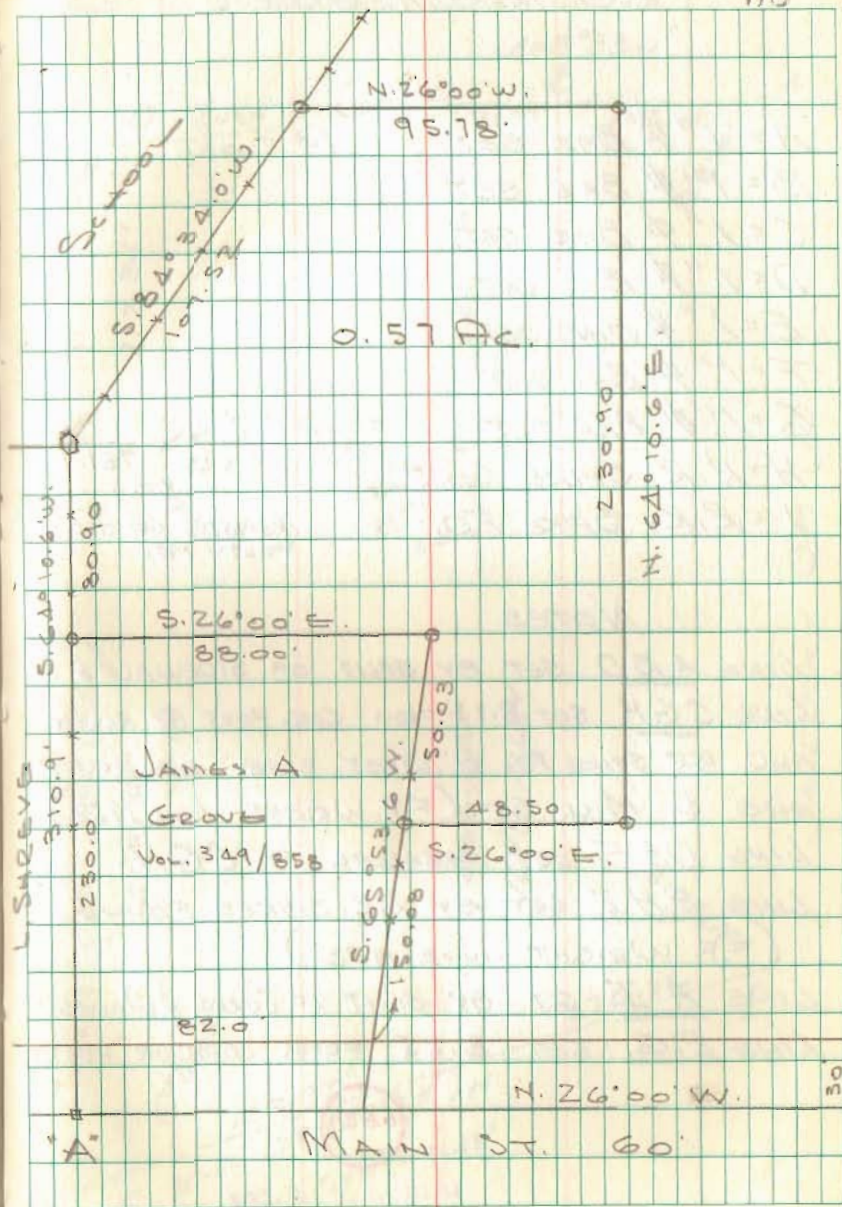 N.26°00'W.
95.78'
School
S.84°34.0'W.
107.52
0.57 Ac.
230.90
N.64°10.6'E.
S.64°10.6'W.
80.90
S.26°00'E.
88.00'
50.03
L. SHREVE
310.9'
230.0
JAMES A
GROVE
Vol. 349/858
S.65°53.6'W.
150.08
48.50
S.26°00'E.
82.0'
N.26°00'W.
30'
"A"
MAIN ST. 60'